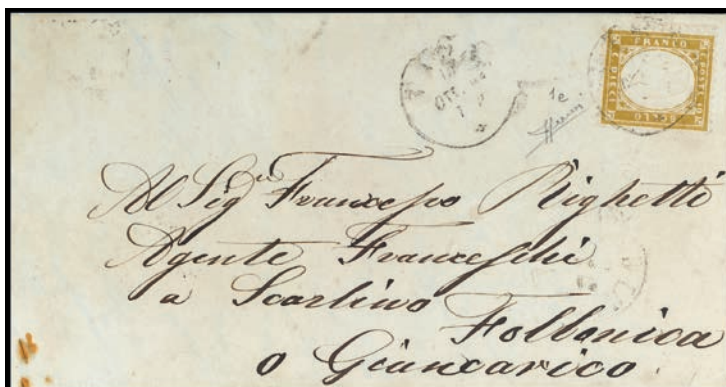 FRANCO
BOLLO
Al Sig.re Francesco Righetti
Agente Franceschi
a Scarlino
Follonica
o Giuncarico